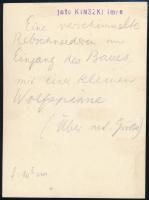 fotó KINSZKI imre
Eine verschimmelte
Rebschneiderin am
Eingang des Baues,
mit einer kleinen
Wolfspinne
(Über nat. Größe)